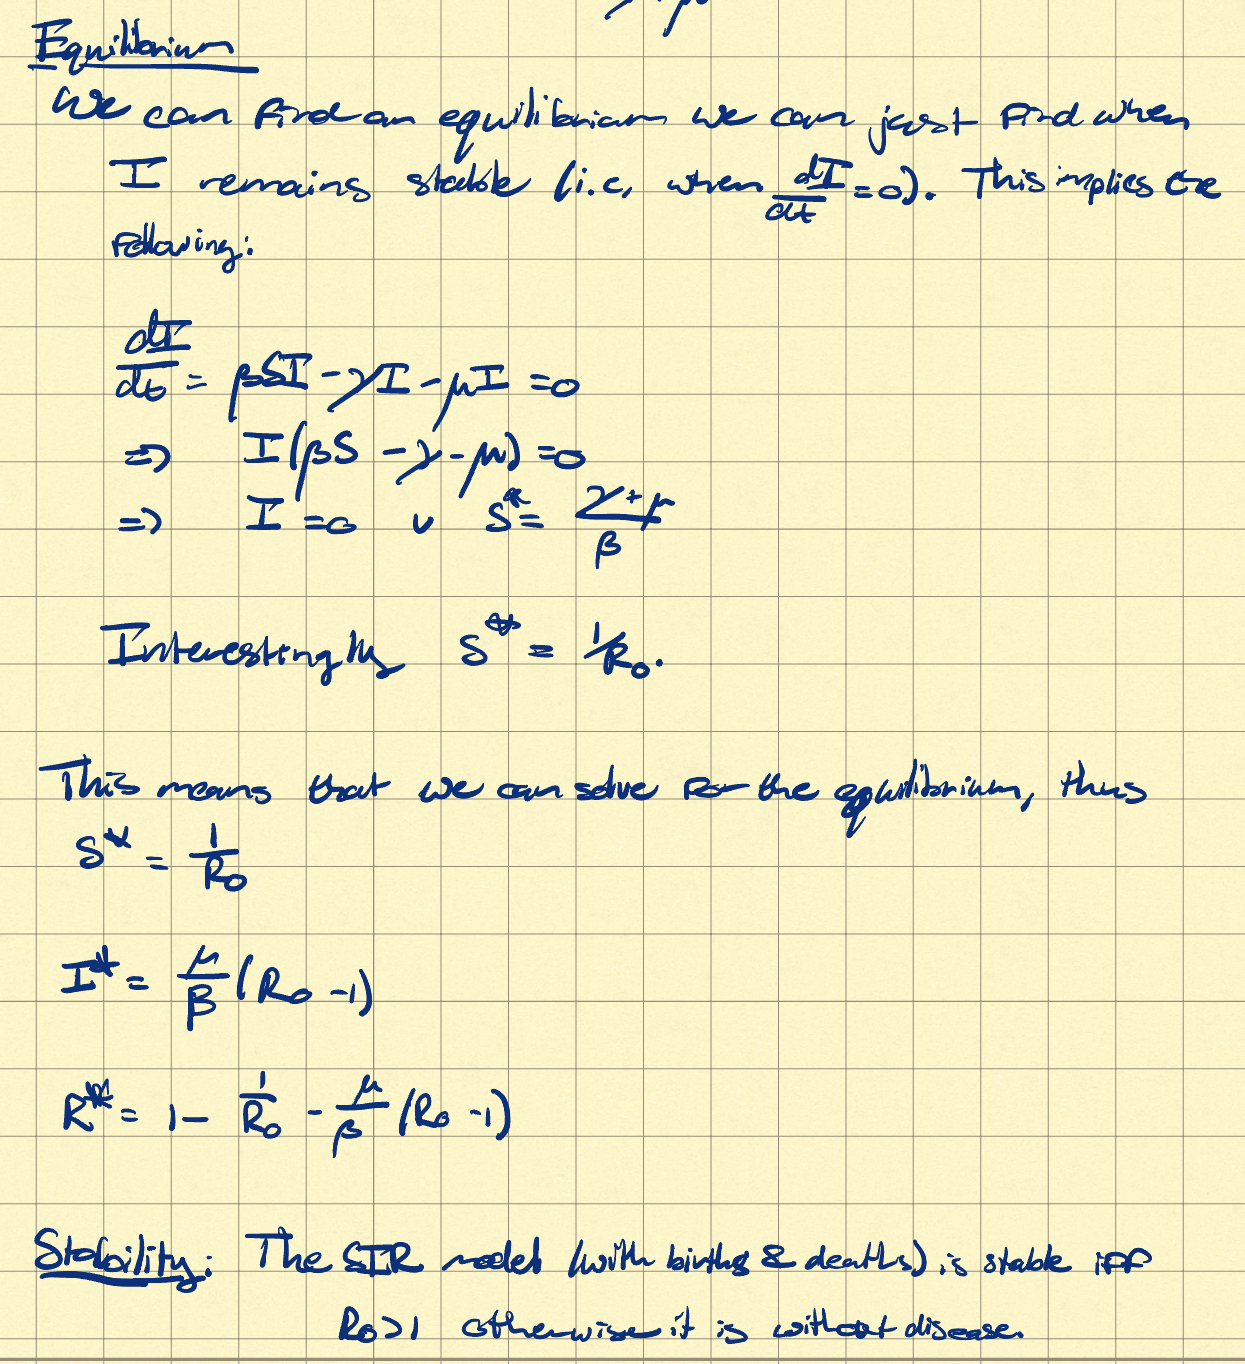 Equilibrium
We can find an equilibrium we can just find when
I remains stable (i.e, when dI/dt = 0). This implies the
following:
dI/dt = βSI - γI - μI = 0
=> I(βS - γ - μ) = 0
=> I = 0 ∨ S* = (γ + μ)/β
Interestingly S* = 1/R₀.
This means that we can solve for the equilibrium, thus
S* = 1/R₀
I* = μ/β (R₀ - 1)
R* = 1 - 1/R₀ - μ/β (R₀ - 1)
Stability: The SIR model (with births & deaths) is stable iff
R₀ > 1 otherwise it is without disease.